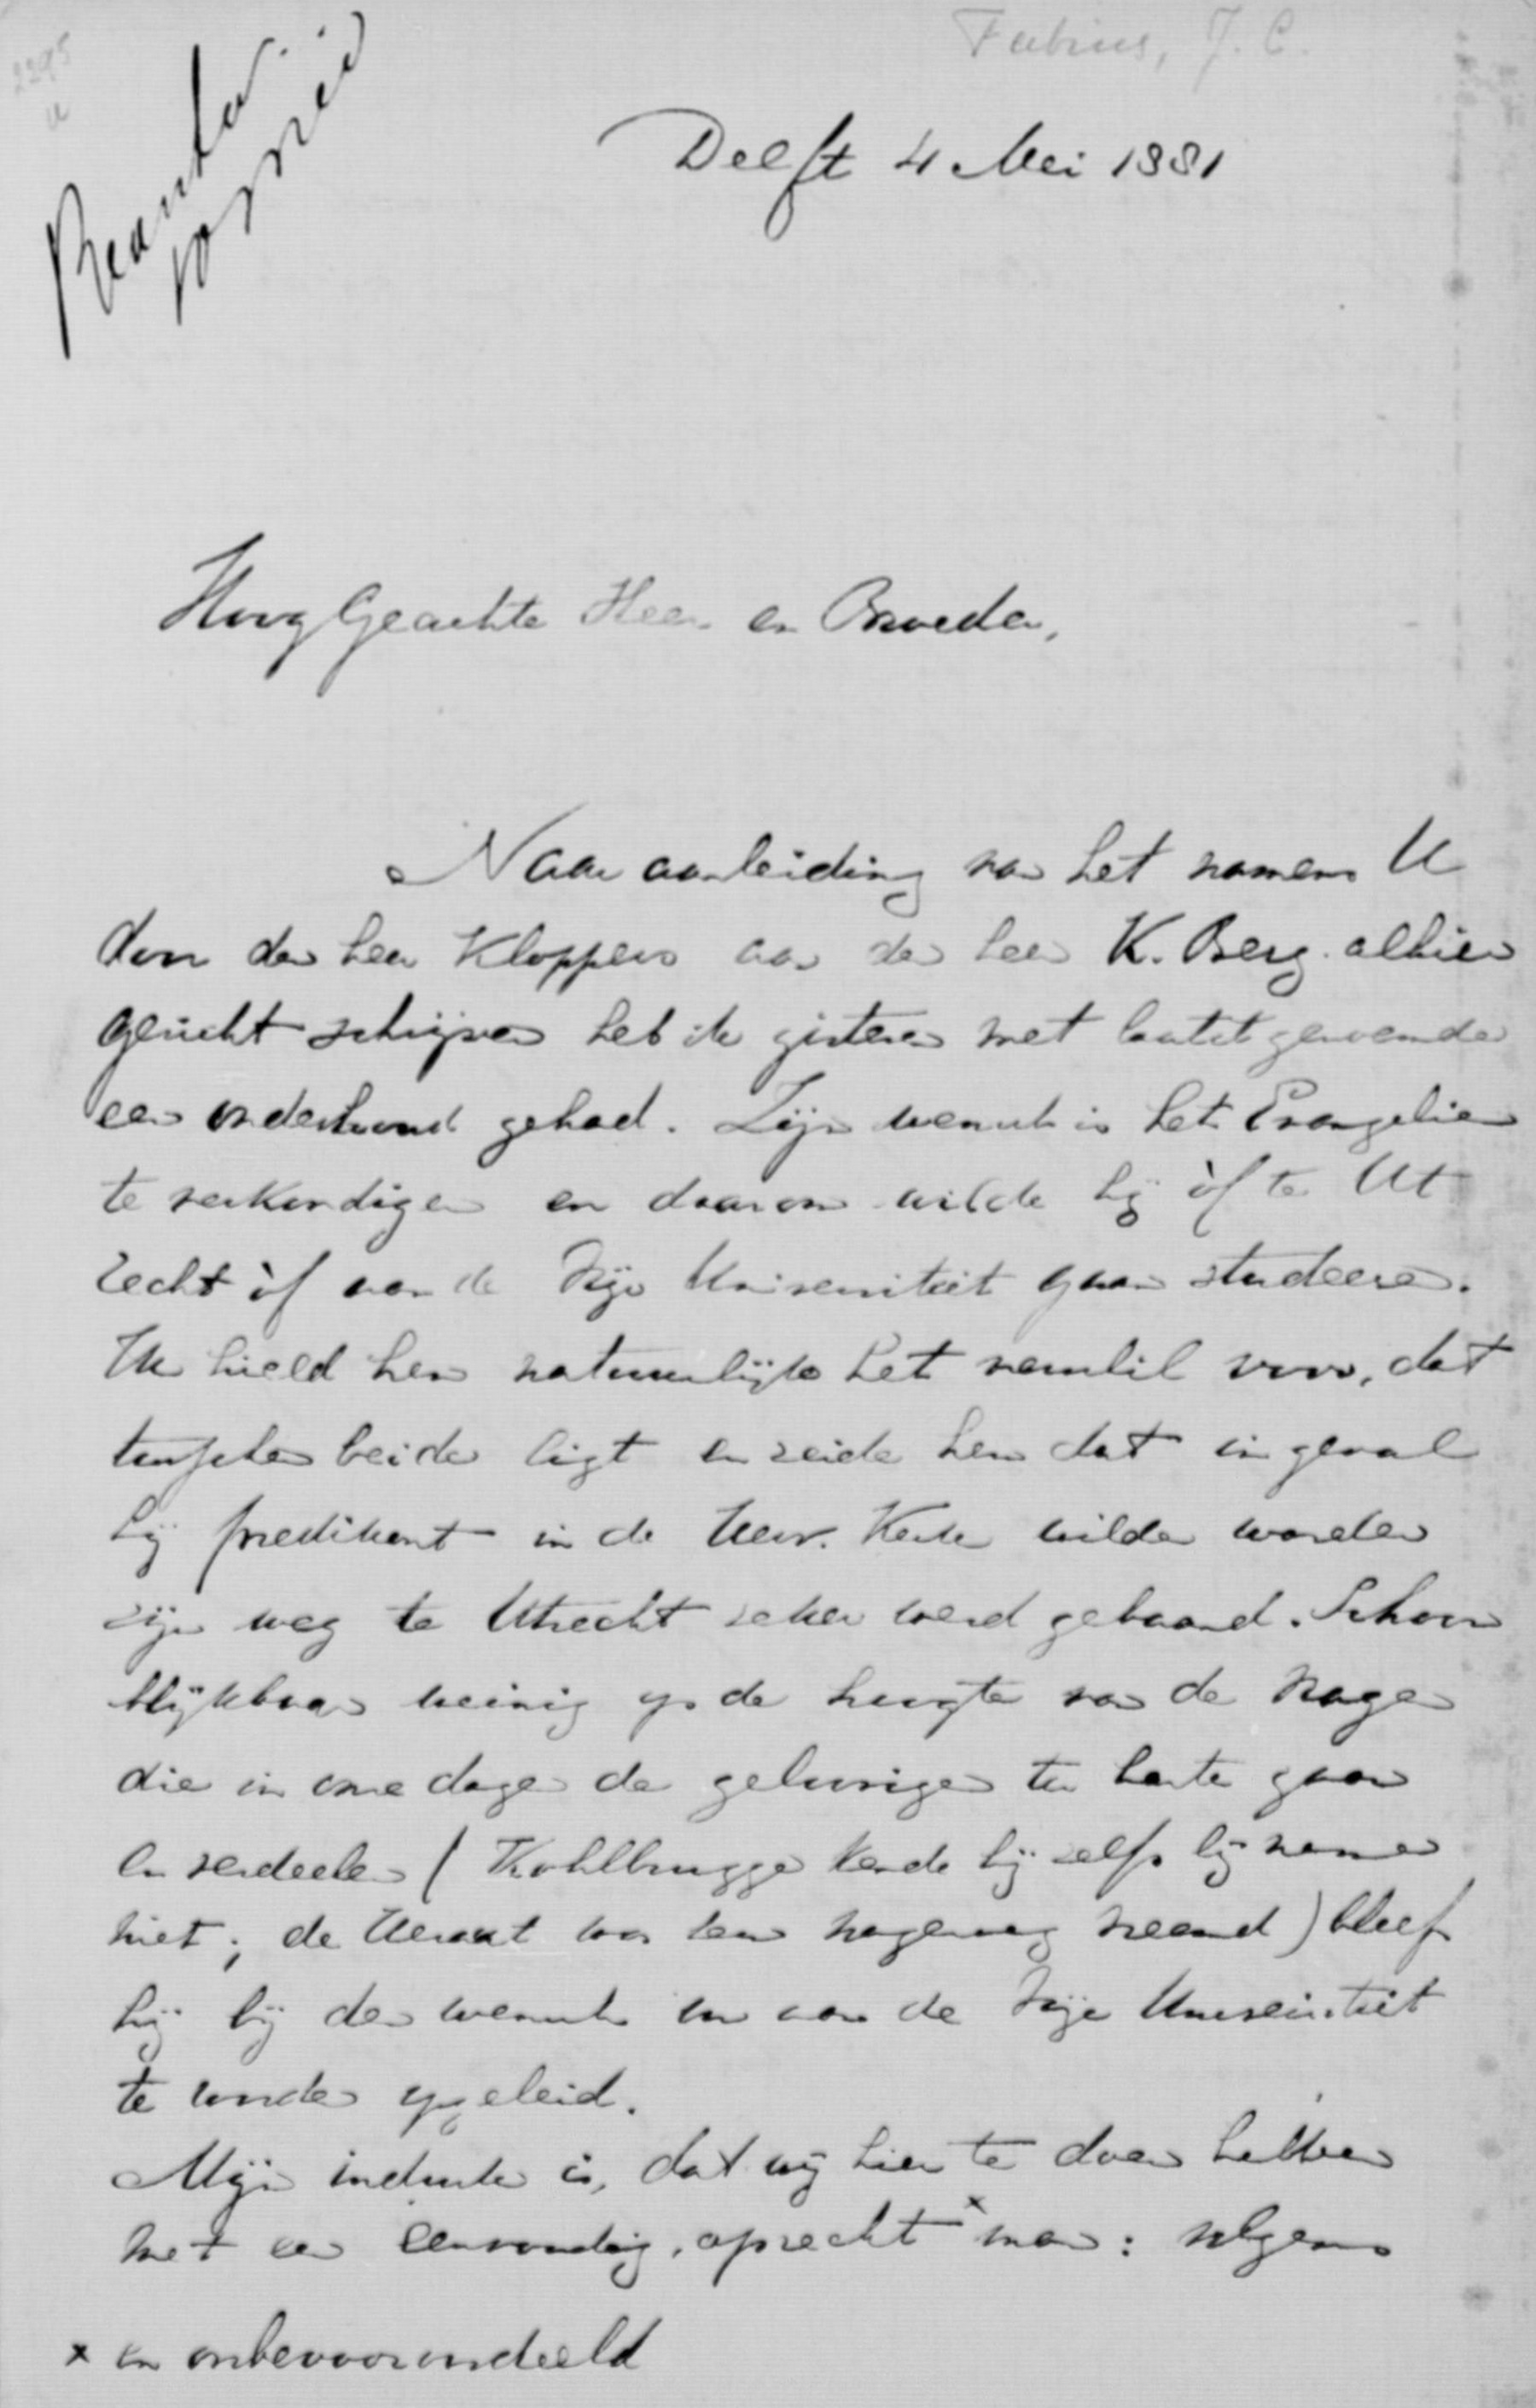 Fabius, J. C.
2295
Beantw.
Delft 4 Mei 1881
HoogGeachte Heer en Broeder,
Naar aanleiding van het namens U
door den heer Kloppers aan den heer K. Berg alhier
gericht schrijven heb ik gisteren met laatstgenoemde
een onderhoud gehad. Zijn wensch is het Evangelie
te verkondigen en daarom wilde hij òf te Ut
recht òf aan de Vrije Universiteit gaan studeeren.
Ik hield hem natuurlijk het verschil voor, dat
tusschen beide ligt en zeide hem dat in geval
hij predikant in de Herv. Kerk wilde worden
zijn weg te Utrecht zeker werd gebaand. Schoon
blijkbaar weinig op de hoogte van de vragen
die in onze dagen de geloovigen ter harte gaan
en verdeelen (Kohlbrugge kende hij zelfs bij name
niet; de Heraut was hem nagenoeg vreemd) bleef
hij bij den wensch om aan de Vrije Universiteit
te worden opgeleid.
Mijn indruk is, dat wij hier te doen hebben
met een eenvoudig, oprecht x man: volgens
x en onbevooroordeeld